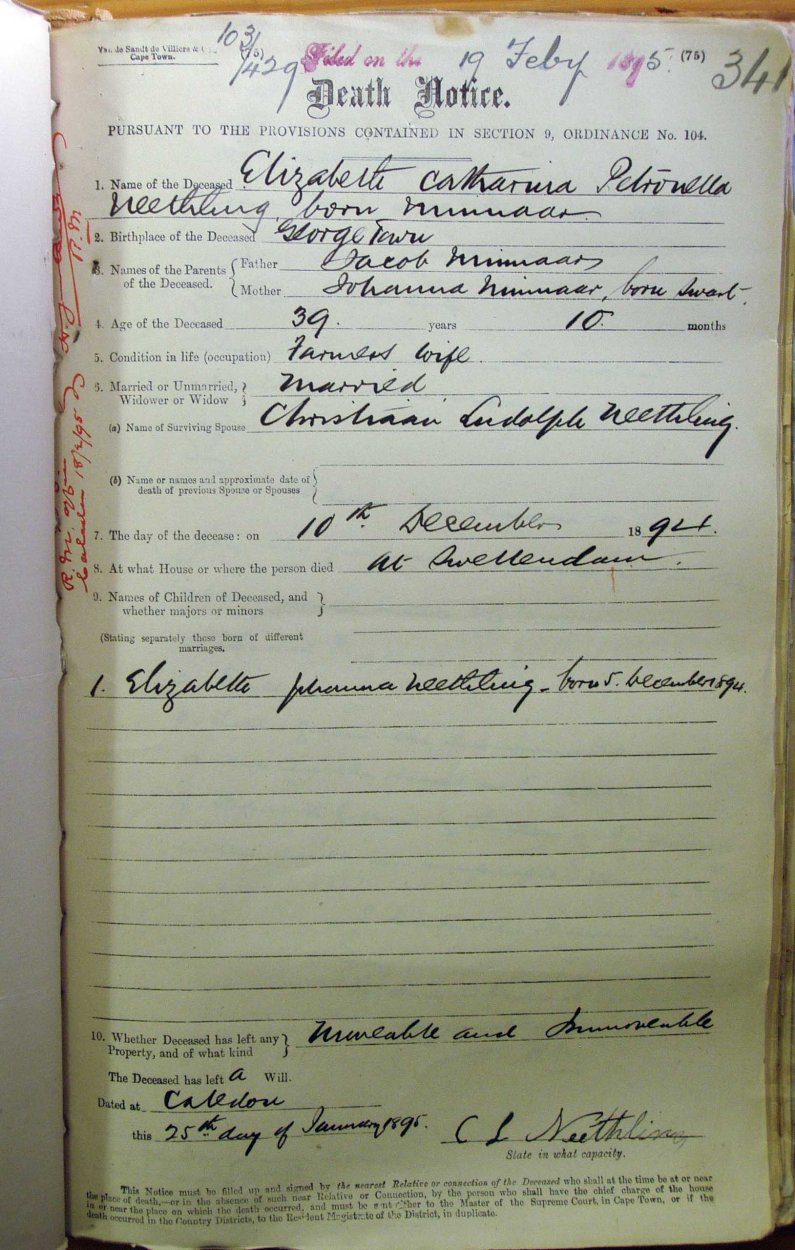 Van de Sandt de Villiers & C
Cape Town.
103/
1429
(75)
Filed on the 19 Feby 1895. (75) 341
Death Notice.
PURSUANT TO THE PROVISIONS CONTAINED IN SECTION 9, ORDINANCE No. 104.
1. Name of the Deceased Elizabeth Catharina Petronella
Neethling, born Minnaar
2. Birthplace of the Deceased George Town
3. Names of the Parents of the Deceased. { Father Jacob Minnaar
Mother Johanna Minnaar, born Swart.
4. Age of the Deceased 39. years 10. months
5. Condition in life (occupation) Farmers wife.
6. Married or Unmarried, Widower or Widow } Married
(a) Name of Surviving Spouse Christiaan Ludolph Neethling.
(b) Name or names and approximate date of death of previous Spouse or Spouses }
7. The day of the decease: on 10th December 1894.
8. At what House or where the person died at Swellendam.
9. Names of Children of Deceased, and whether majors or minors }
(Stating separately those born of different marriages.
1. Elizabeth Johanna Neethling - born 5. December 1894.
10. Whether Deceased has left any Property, and of what kind } Moveable and Immoveable
The Deceased has left a Will.
Dated at Caledon
this 25th day of January 1895. C L Neethling
State in what capacity.
This Notice must be filled up and signed by the nearest Relative or connection of the Deceased who shall at the time be at or near
the place of death,—or in the absence of such near Relative or Connection, by the person who shall have the chief charge of the house
in or near the place on which the death occurred, and must be sent either to the Master of the Supreme Court, in Cape Town, or if the
death occurred in the Country Districts, to the Resident Magistrate of the District, in duplicate.
R.M. Office
Caledon 18/2/95
R.M